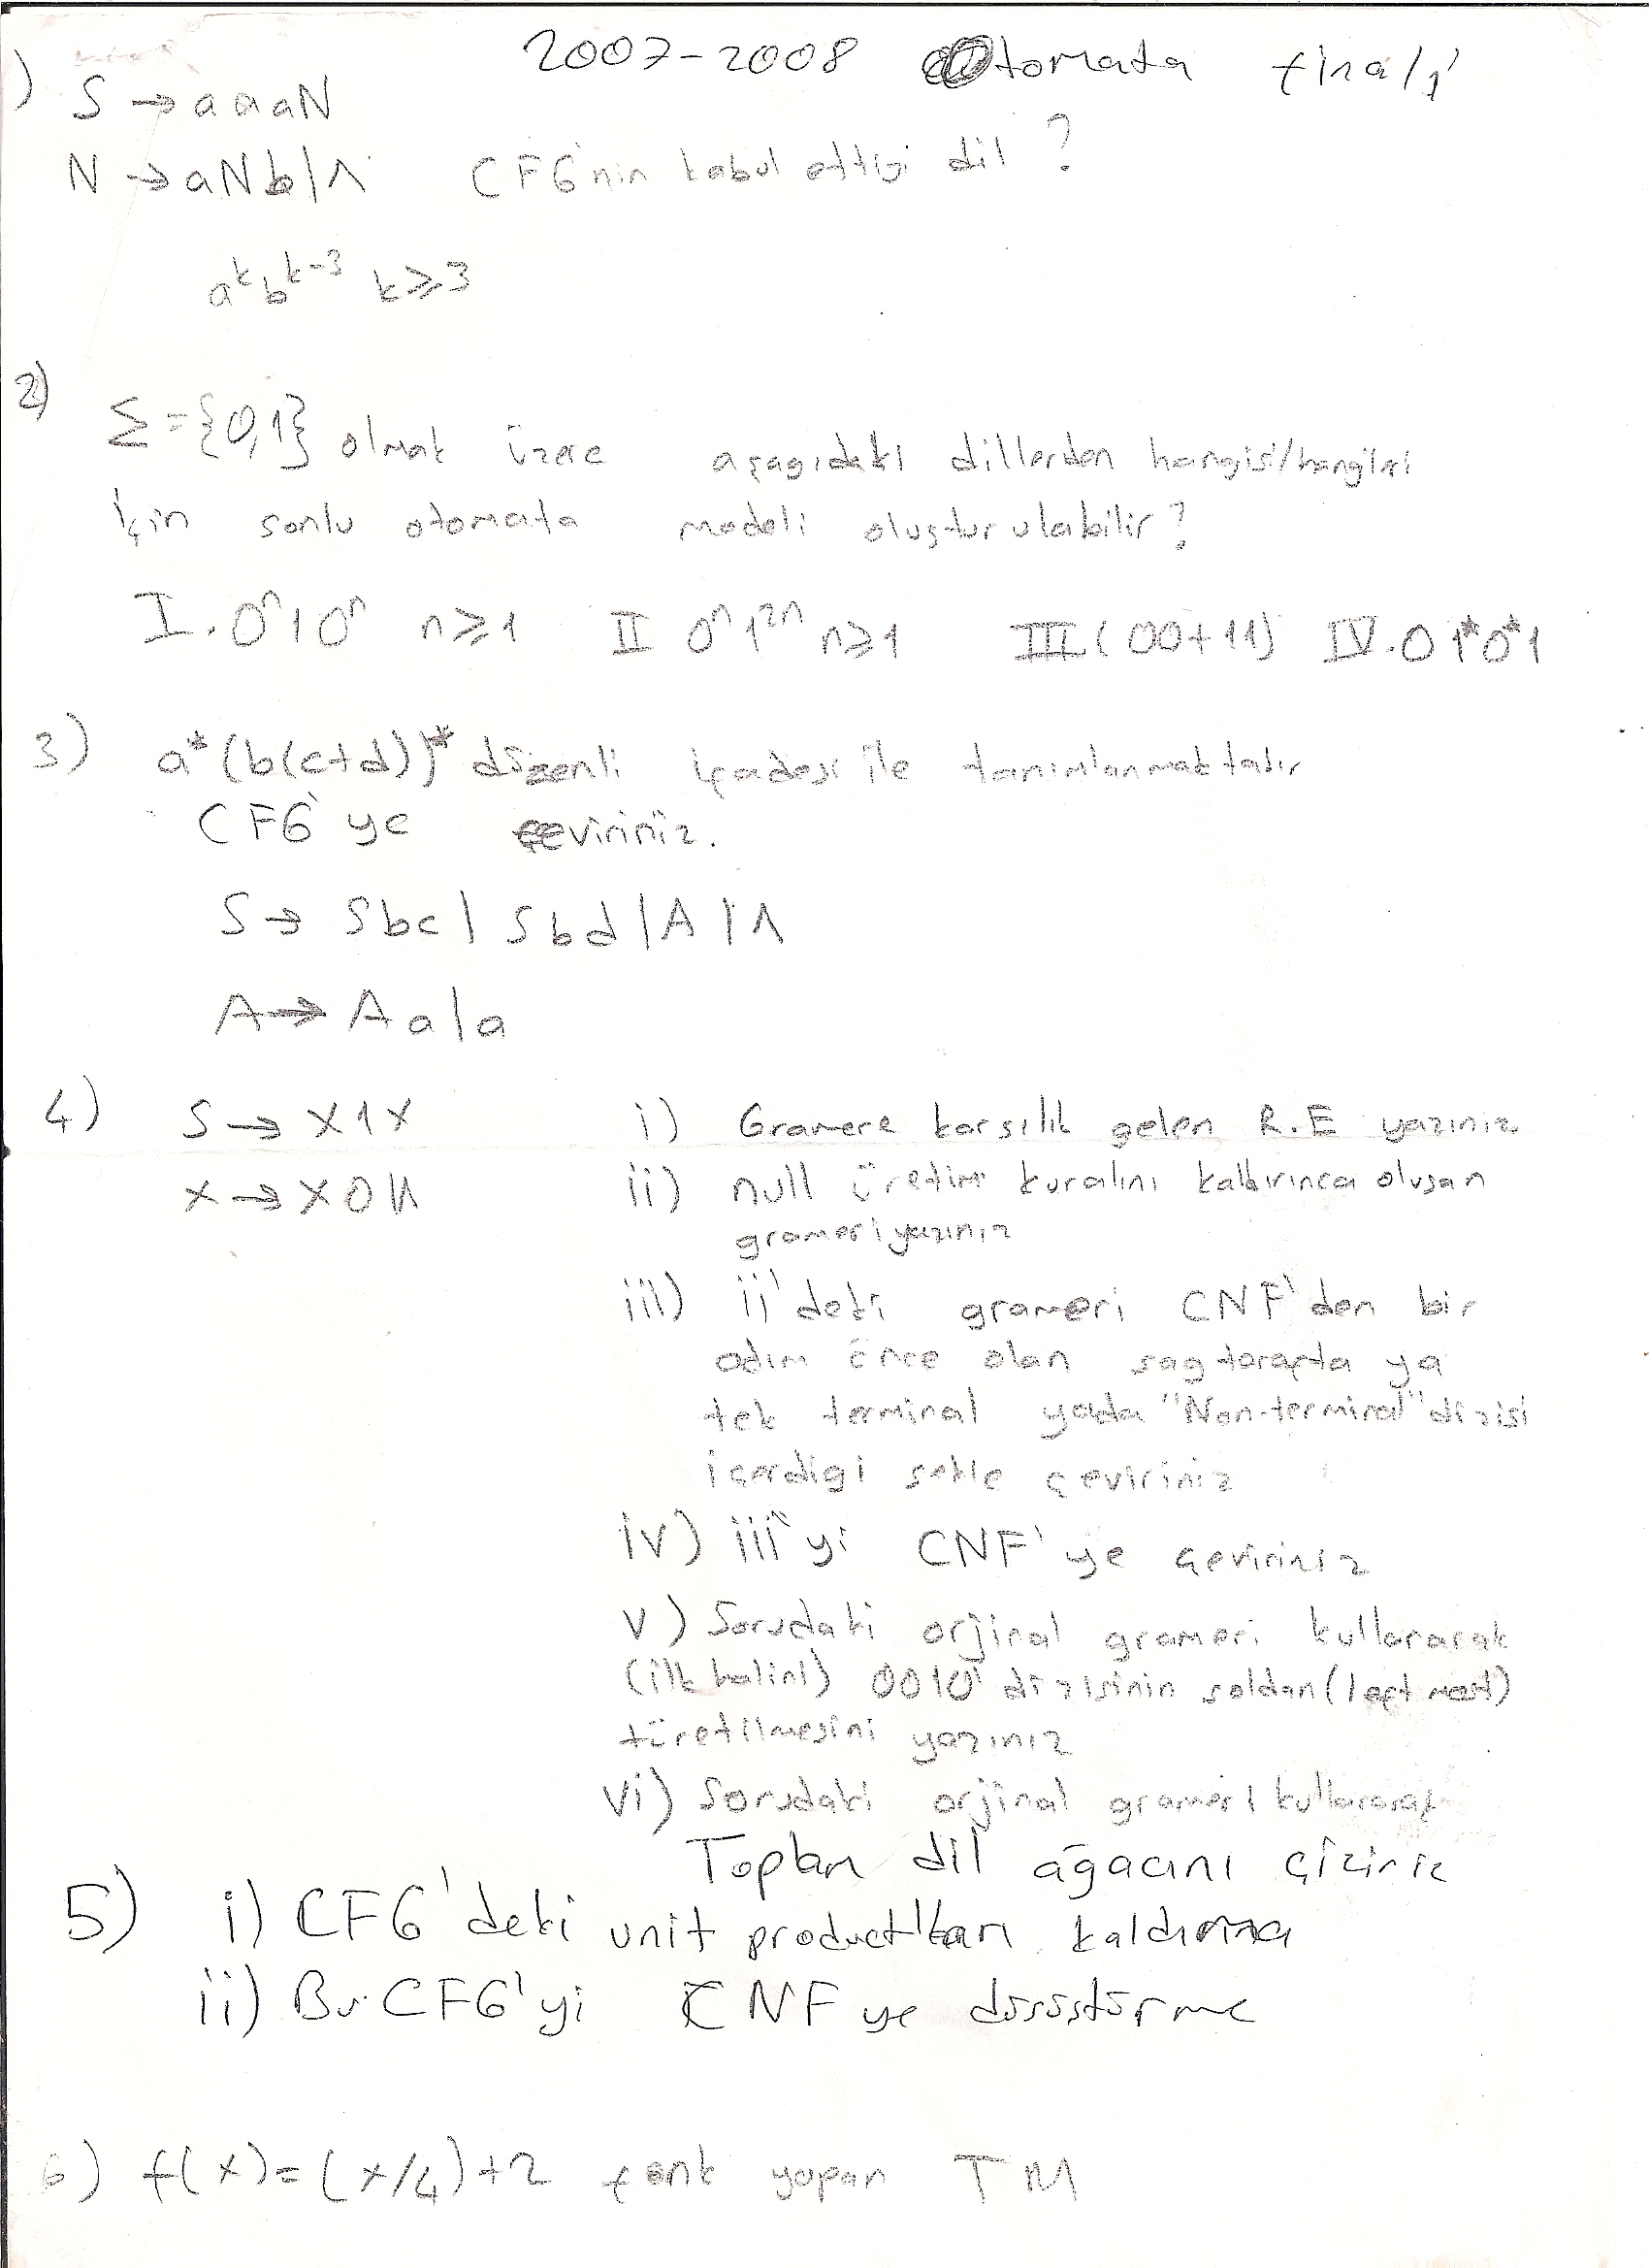 2007-2008 Otomata finali
) S → aaaN
N → aNb/Λ CFG'nin kabul ettigi dil ?
a^k b^k-3 k≥3
2)
Σ={0,1} olmak üzere aşagıdaki dillerden hangisi/hangileri
İçin sonlu otomata modeli oluşturulabilir?
I. 0^n 1 0^n n≥1 II 0^n 1^2n n≥1 III (00+11) IV. 0 1* 0* 1
3) a*(b(c+d))* düzenli ifadesi ile tanımlanmaktadır
CFG'ye çeviriniz.
S → Sbc | Sbd | A | Λ
A → Aa | a
4) S → X1X
X → X0|Λ
i) Gramere karsılık gelen R.E yazınız
ii) null üretim kuralını kaldırınca oluşan
grameri yazınız
iii) ii'deki grameri CNF'den bir
adım önce olan sag tarafta ya
tek terminal yada "Non-terminal" dizisi
içerdigi şekle çeviriniz
iv) iii'yi CNF'ye çeviriniz
v) Sorudaki orjinal grameri kullanarak
(ilk halini) 0010 dizisinin soldan (left most)
türetilmesini yazınız
vi) Sorudaki orjinal grameri kullanarak
Toplam dil ağacını çiziniz
5) i) CFG'deki unit productları kaldırma
ii) Bu CFG'yi CNF ye dönüştürme
6) f(x)=(x/4)+2 fonk yapan TM